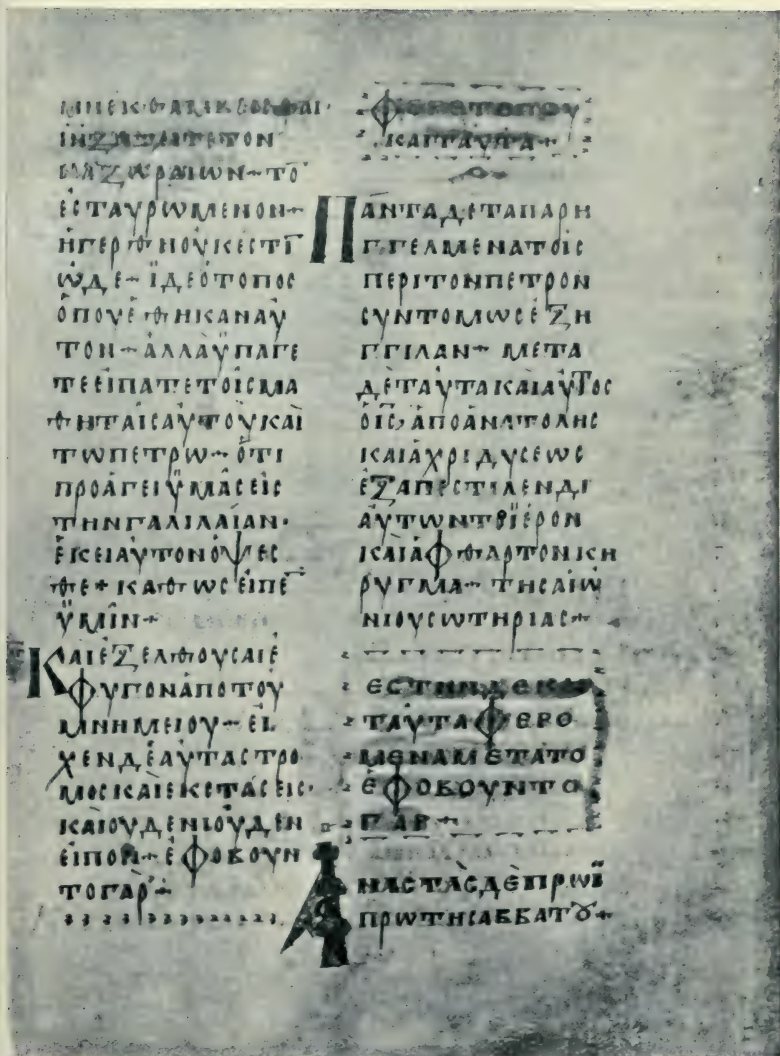 ΙΝΖΗΤΕΙΤΕΤΟΝ
ΝΑΖΩΡΑΙΩΝ~ΤΟ̄
ΕϹΤΑΥΡΩΜΕΝΟΝ~
ΗΓΕΡΘΗΟΥΚΕϹΤῙ
ΩΔΕ~ΪΔΕΟΤΟΠΟϹ
ΟΠΟΥΕΘΗΚΑΝΑΥ
ΤΟΝ~ΑΛΛΑΫΠΑΓΕ
ΤΕΕΙΠΑΤΕΤΟΙϹΜΑ
ΘΗΤΑΙϹΑΥΤΟΥΚΑΙ
ΤΩΠΕΤΡΩ~ΟΤΙ
ΠΡΟΑΓΕΙΫΜΑϹΕΙϹ
ΤΗΝΓΑΛΙΛΑΙΑΝ·
ΕΚΕΙΑΥΤΟΝΟΨΕϹ
ΘΕ+ΚΑΘΩϹΕΙΠΕ̄
ΫΜΙΝ~
ΚΑΙΕΞΕΛΘΟΥϹΑΙΕ
ΦΥΓΟΝΑΠΟΤΟΥ
ΜΝΗΜΕΙΟΥ~ΕΙ
ΧΕΝΔΕΑΥΤΑϹΤΡΟ
ΜΟϹΚΑΙΕΚϹΤΑϹΕΙϹ·
ΚΑΙΟΥΔΕΝΙΟΥΔΕΝ
ΕΙΠΟΝ~ΕΦΟΒΟΥΝ
ΤΟΓΑΡ~
ΦΕΡΕΤΕΠΟΥ
ΚΑΙΤΑΥΤΑ+
ΠΑΝΤΑΔΕΤΑΠΑΡΗ
ΓΓΕΛΜΕΝΑΤΟΙϹ
ΠΕΡΙΤΟΝΠΕΤΡΟΝ
ϹΥΝΤΟΜΩϹΕΞΗ
ΓΓΙΛΑΝ~ΜΕΤΑ
ΔΕΤΑΥΤΑΚΑΙΑΥΤΟϹ
ΟΙϹ,ΑΠΟΑΝΑΤΟΛΗϹ
ΚΑΙΑΧΡΙΔΥϹΕΩϹ
ΕΞΑΠΕϹΤΙΛΕΝΔΙ
ΑΥΤΩΝΤΟΪΕΡΟΝ
ΚΑΙΑΦΘΑΡΤΟΝΚΗ
ΡΥΓΜΑ~ΤΗϹΑΙΩ
ΝΙΟΥϹΩΤΗΡΙΑϹ~
ΕϹΤΗΝΔΕΚΑΙ
ΤΑΥΤΑΦΕΡΟ
ΜΕΝΑΜΕΤΑΤΟ
ΕΦΟΒΟΥΝΤΟ
ΓΑΡ~
ΑΝΑϹΤΑϹΔΕΠΡΩΪ
ΠΡΩΤΗϹΑΒΒΑΤȢ+